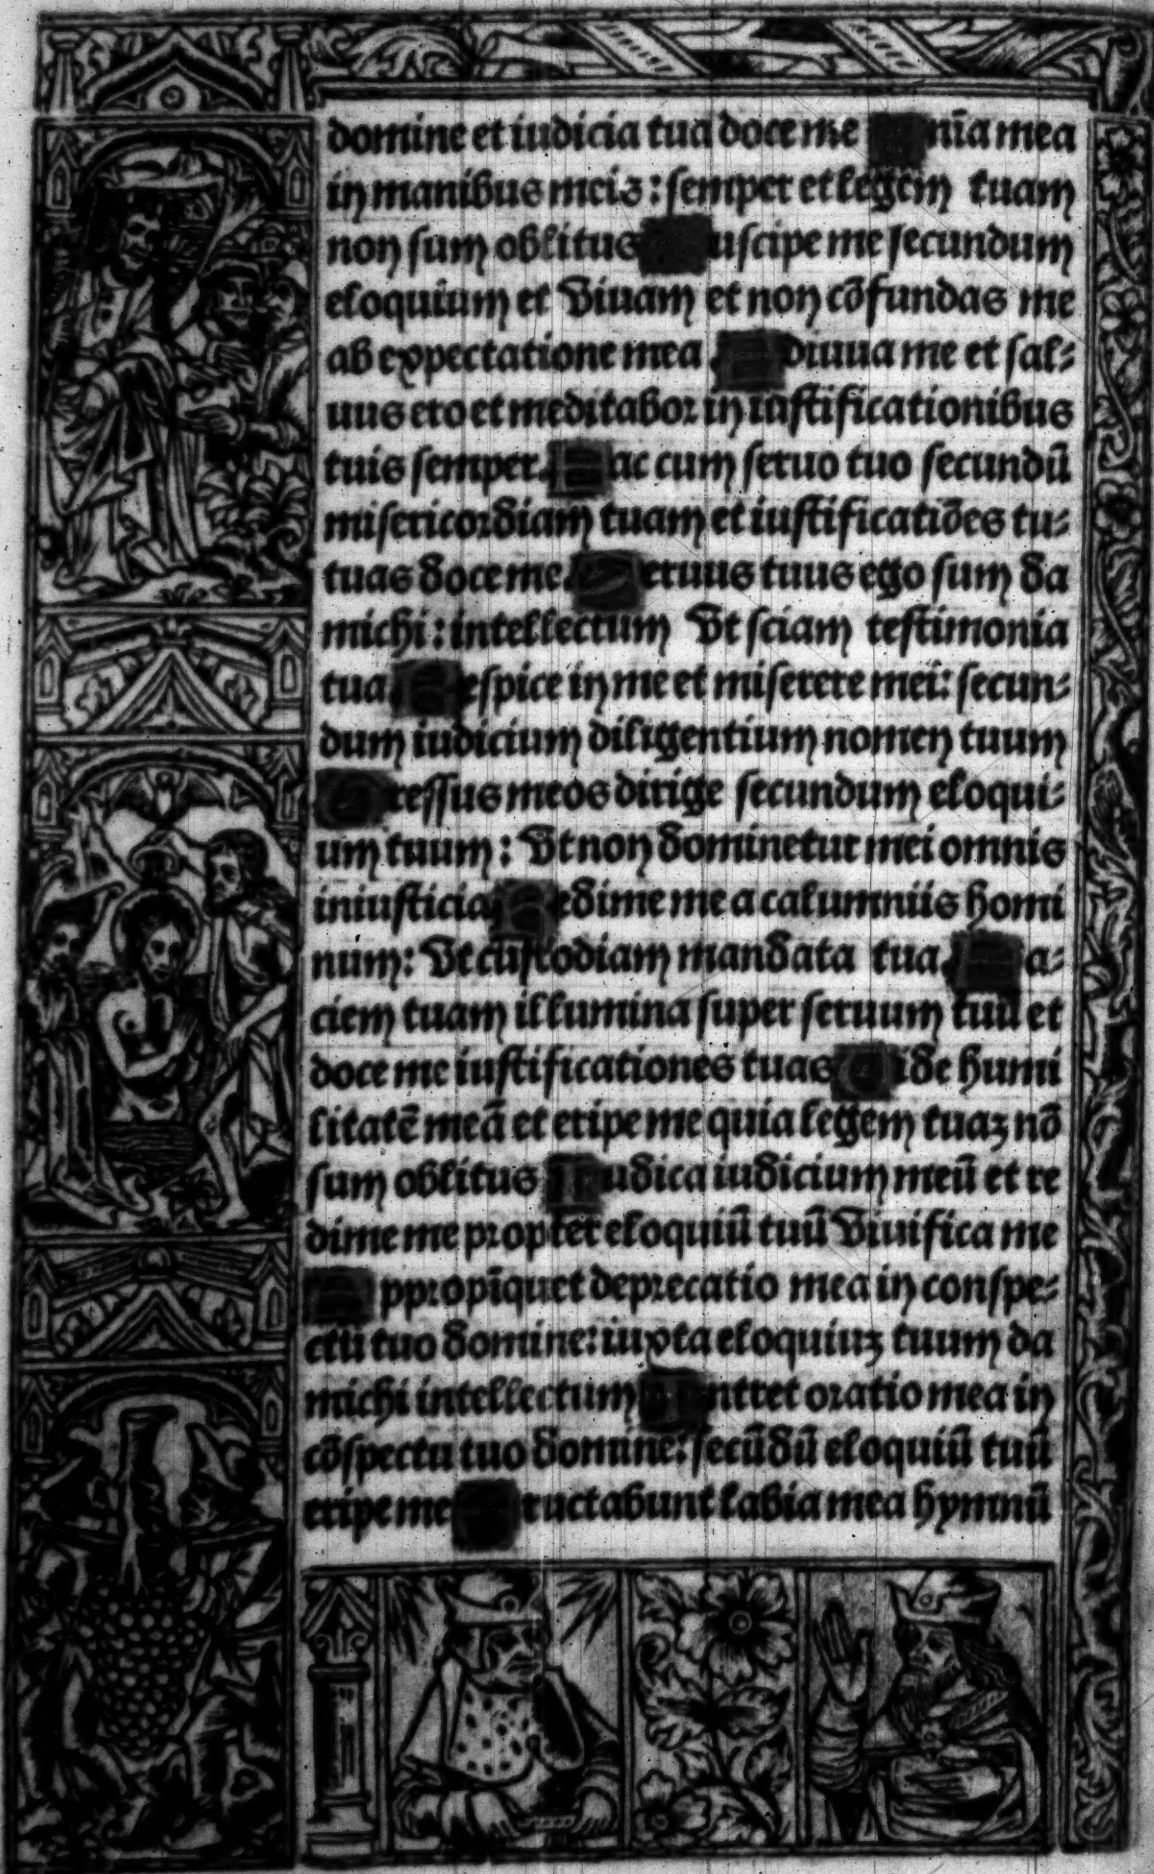 domine et iudicia tua doce me Anīa mea
in manibus meis : semper et legem tuam
non sum oblitus Suscipe me secundum
eloquium et viuam et non cōfundas me
ab expectatione mea Adiuua me et sal-
uus ero et meditabor in iustificationibus
tuis semper. Fac cum seruo tuo secundū
misericordiam tuam et iustificatiōes tu-
tuas doce me. Seruus tuus ego sum da
michi : intellectum vt sciam testimonia
tua Respice in me et miserere mei: secun-
dum iudicium diligentium nomen tuum
Gressus meos dirige secundum eloqui-
um tuum : vt non dominetur mei omnis
iniusticia Redime me a calumniis homi
num: vt custodiam mandata tua. Fa-
ciem tuam illumina super seruum tuū et
doce me iustificationes tuas Vide humi
litatē meā et eripe me quia legem tuaꝫ nō
sum oblitus Iudica iudicium meū et re
dime me propter eloquiū tuū viuifica me
Appropīquet deprecatio mea in conspe-
ctu tuo domine: iuxta eloquiuꝫ tuum da
michi intellectum Intret oratio mea in
cōspectu tuo domine: secūdū eloquiū tuū
eripe me Eructabunt labia mea hymnū